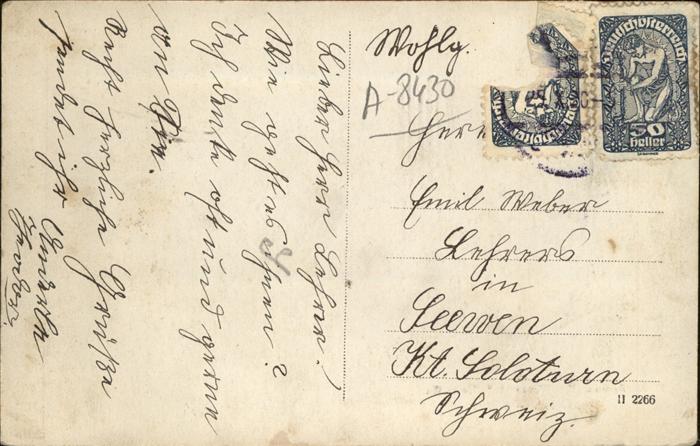 Lieber Herr Lehrer!
Wie geht es Ihnen?
Ich denke oft und gerne
an Sie.
Recht herzliche Grüße
sendet ihr
Wohlg.
A-8430
Herr
Emil Weber
Lehrers
in
Seewen
Kt. Soloturn
Schweiz.
Deutschösterreich
50
Heller
II 2266